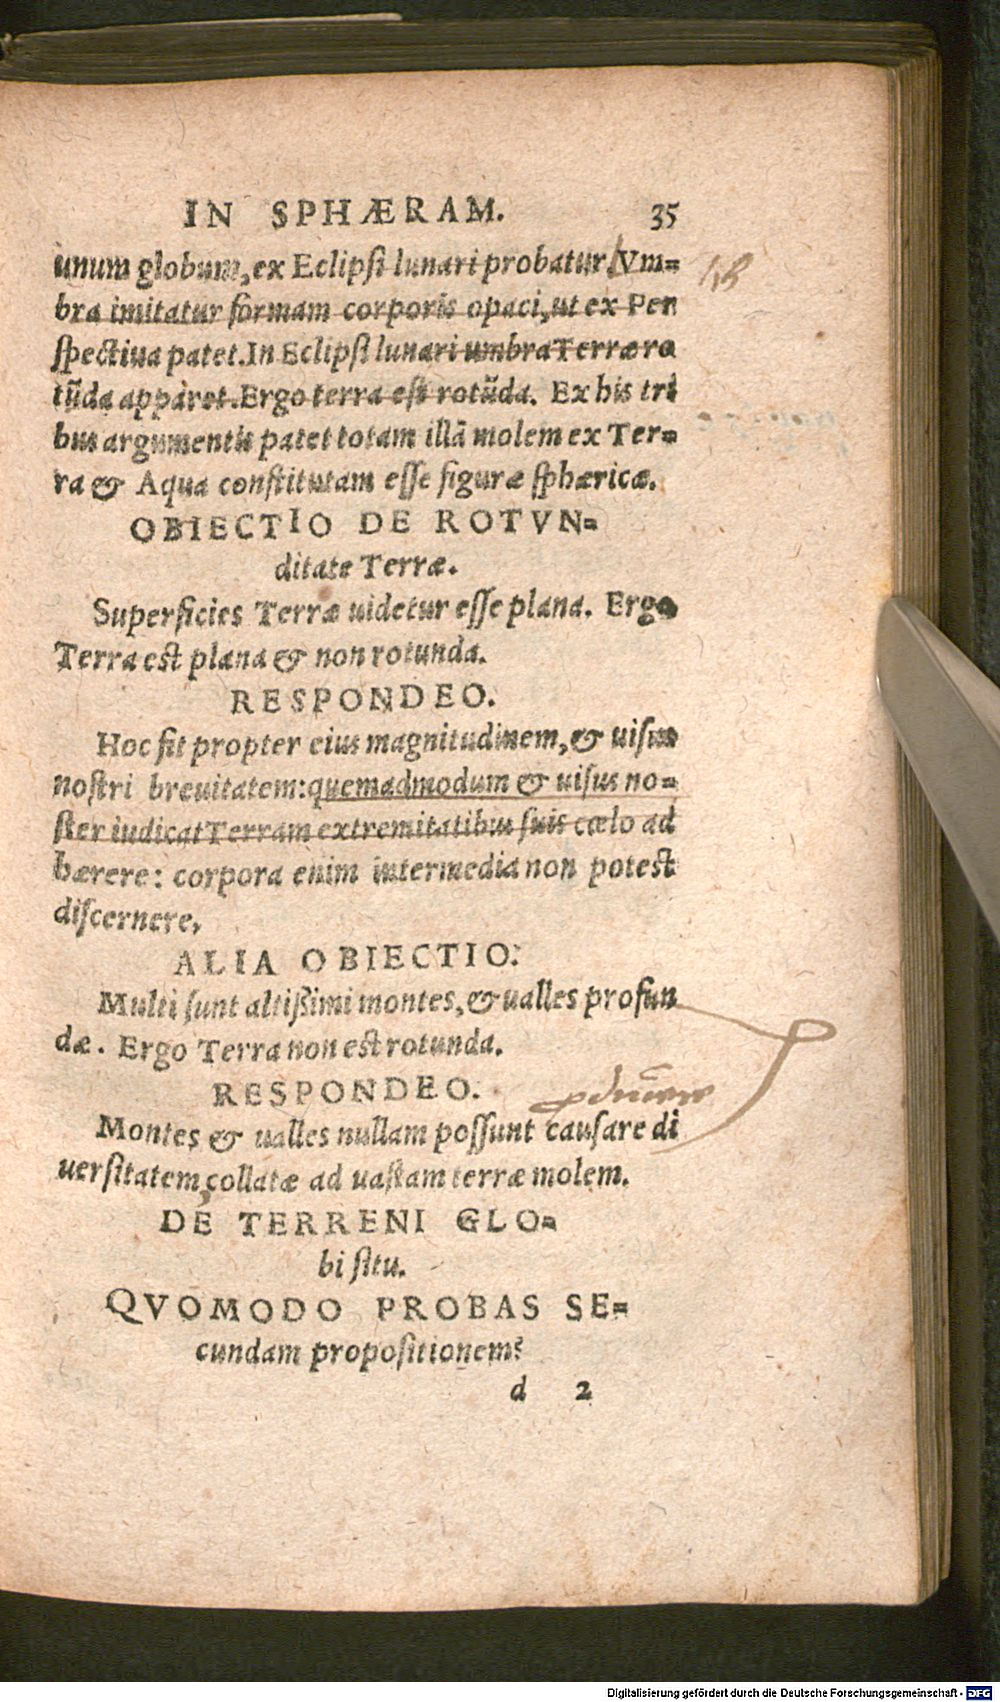 IN SPHÆRAM. 35
unum globum, ex Eclipsi lunari probatur. Vm=
bra imitatur formam corporis opaci, ut ex Per
spectiua patet. In Eclipsi lunari umbra Terræ ro
tũda apparet. Ergo terra est rotũda. Ex his tri
bus argumentis patet totam illã molem ex Ter=
ra & Aqua constitutam esse figuræ sphæricæ.
OBIECTIO DE ROTVN=
ditate Terræ.
Superficies Terræ uidetur esse plana. Ergo
Terra est plana & non rotunda.
RESPONDEO.
Hoc fit propter eius magnitudinem, & uisus
nostri breuitatem: quemadmodum & uisus no=
ster iudicat Terram extremitatibus suis cœlo ad
hærere: corpora enim intermedia non potest
discernere,
ALIA OBIECTIO.
Multi sunt altißimi montes, & ualles profun
dæ. Ergo Terra non est rotunda.
RESPONDEO.
Montes & ualles nullam possunt causare di
uersitatem, collatæ ad uastam terræ molem.
DE TERRENI GLO=
bi situ.
QVOMODO PROBAS SE=
cundam propositionem?
d 2
Digitalisierung gefördert durch die Deutsche Forschungsgemeinschaft - DFG